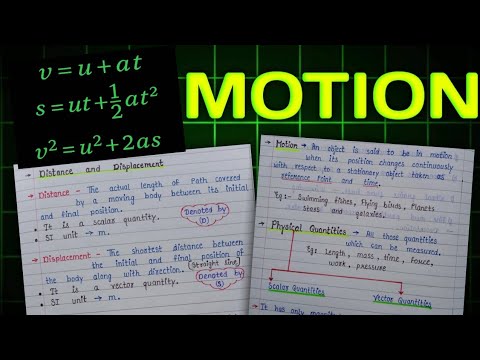 v = u + at
s = ut + 1/2 at²
v² = u² + 2as
MOTION
Distance and Displacement
→ Distance - The actual length of Path covered
by a moving body between its initial
and final position.
• It is a scalar quantity.
• SI unit → m.
Denoted by
(D)
→ Displacement - The shortest distance between
the initial and final position of
the body along with direction. (Straight line)
• It is a vector quantity.
• SI unit → m.
Denoted by
(S)
→ Motion → An object is said to be in motion
when its position changes continuously
with respect to a stationary object taken as
reference Point and time.
Eg:- Swimming fishes, Flying birds, Planets
stars and galaxies.
→ Physical Quantities → All those quantities
which can be measured.
Eg: Length, mass, time, force,
work, pressure
Scalar Quantities
Vector Quantities
→ It has only